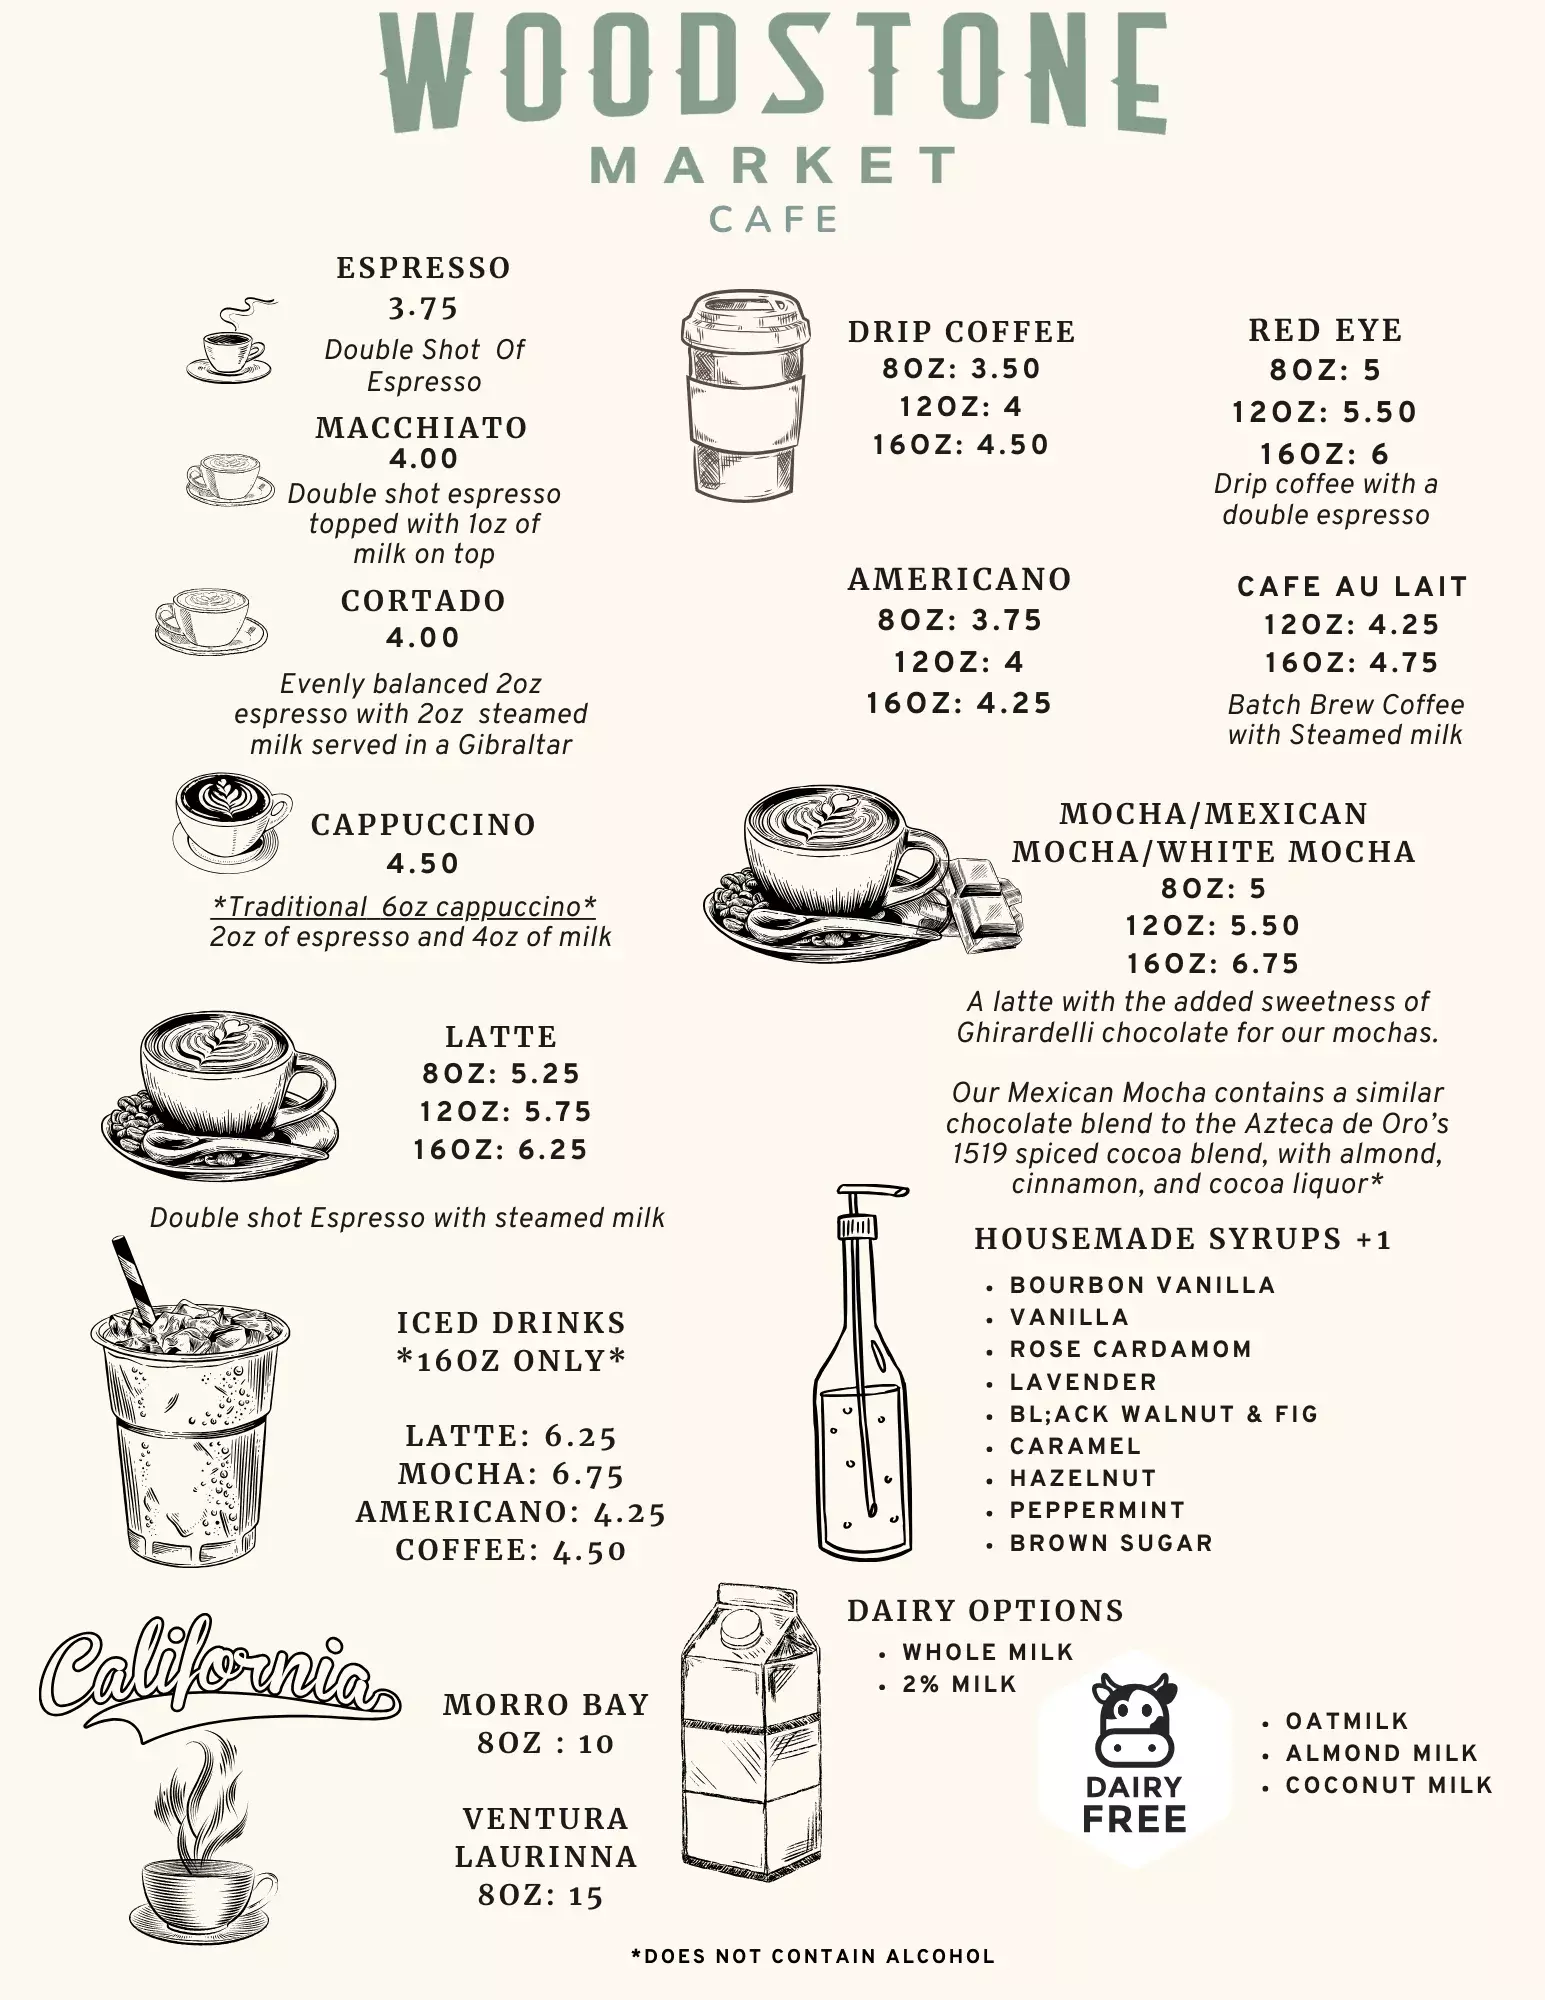 WOODSTONE
MARKET
CAFE
ESPRESSO
3.75
Double Shot Of
Espresso
MACCHIATO
4.00
Double shot espresso
topped with 1oz of
milk on top
CORTADO
4.00
Evenly balanced 2oz
espresso with 2oz steamed
milk served in a Gibraltar
CAPPUCCINO
4.50
*Traditional 6oz cappuccino*
2oz of espresso and 4oz of milk
LATTE
8OZ: 5.25
12OZ: 5.75
16OZ: 6.25
Double shot Espresso with steamed milk
ICED DRINKS
*16OZ ONLY*
LATTE: 6.25
MOCHA: 6.75
AMERICANO: 4.25
COFFEE: 4.50
California
MORRO BAY
8OZ : 10
VENTURA
LAURINNA
8OZ: 15
DRIP COFFEE
8OZ: 3.50
12OZ: 4
16OZ: 4.50
RED EYE
8OZ: 5
12OZ: 5.50
16OZ: 6
Drip coffee with a
double espresso
AMERICANO
8OZ: 3.75
12OZ: 4
16OZ: 4.25
CAFE AU LAIT
12OZ: 4.25
16OZ: 4.75
Batch Brew Coffee
with Steamed milk
MOCHA/MEXICAN
MOCHA/WHITE MOCHA
8OZ: 5
12OZ: 5.50
16OZ: 6.75
A latte with the added sweetness of
Ghirardelli chocolate for our mochas.
Our Mexican Mocha contains a similar
chocolate blend to the Azteca de Oro’s
1519 spiced cocoa blend, with almond,
cinnamon, and cocoa liquor*
HOUSEMADE SYRUPS +1
• BOURBON VANILLA
• VANILLA
• ROSE CARDAMOM
• LAVENDER
• BL;ACK WALNUT & FIG
• CARAMEL
• HAZELNUT
• PEPPERMINT
• BROWN SUGAR
DAIRY OPTIONS
• WHOLE MILK
• 2% MILK
DAIRY
FREE
• OATMILK
• ALMOND MILK
• COCONUT MILK
*DOES NOT CONTAIN ALCOHOL